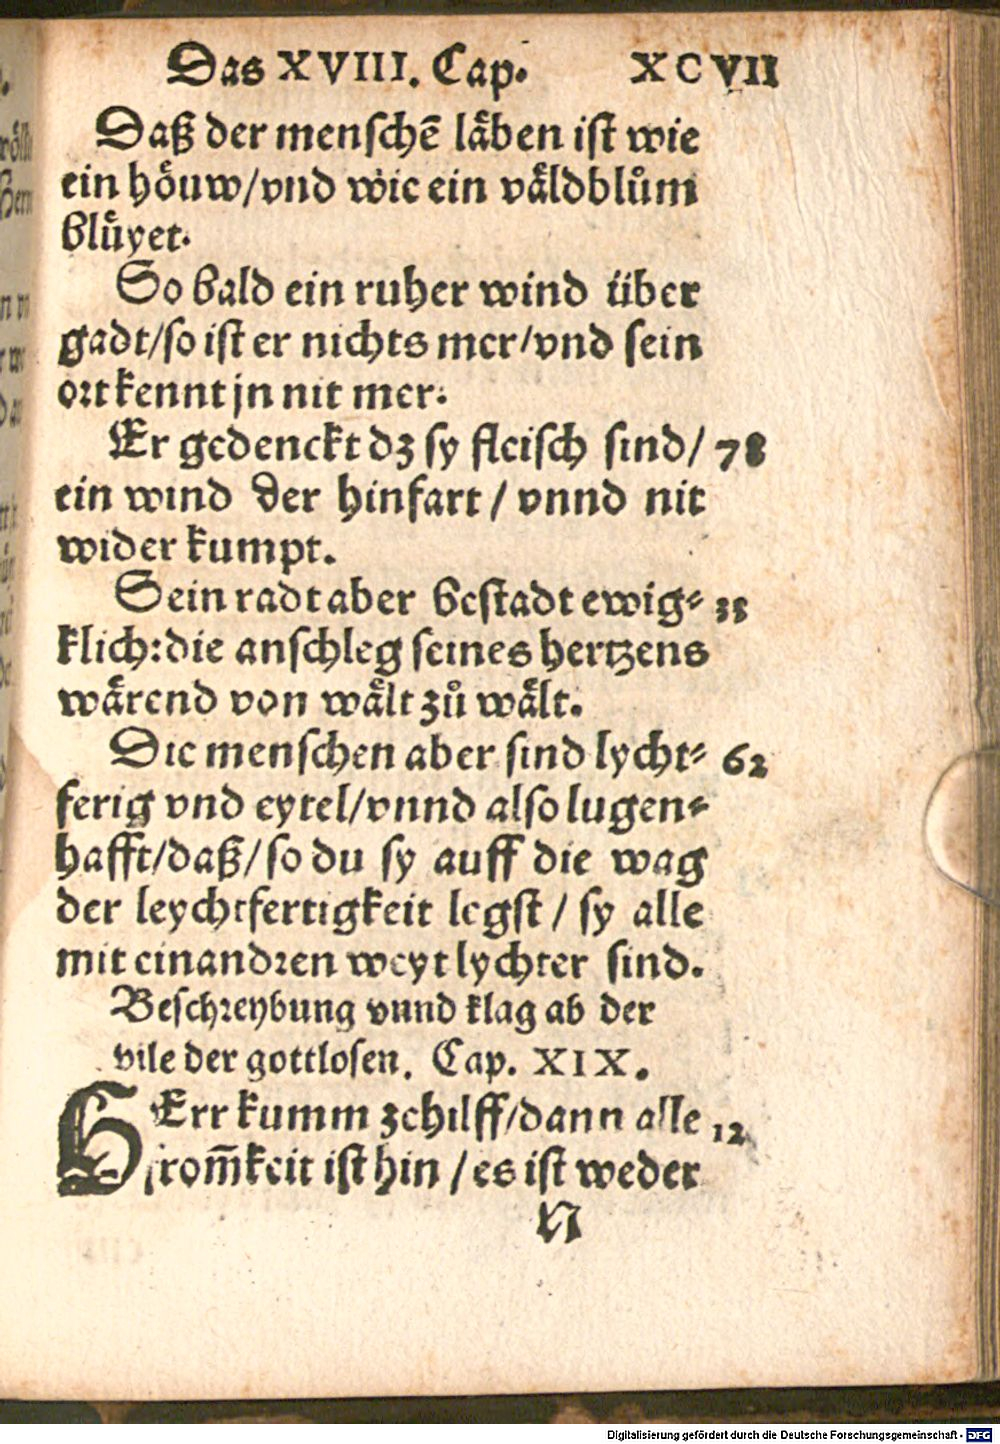 Das XVIII. Cap. XCVII
Daß der menschē låben ist wie
ein höuw/vnd wie ein våldblům
blůyet.
So bald ein ruher wind über
gadt/so ist er nichts mer/vnd sein
ort kennt jn nit mer.
Er gedenckt dz sy fleisch sind/ 78
ein wind der hinfart / vnnd nit
wider kumpt.
Sein radt aber bestadt ewig⸗ 33
klich:die anschleg seines hertzens
wårend von wålt zů wålt.
Die menschen aber sind lycht⸗ 62
ferig vnd eytel/vnnd also lugen⸗
hafft/daß/so du sy auff die wag
der leychtfertigkeit legst / sy alle
mit einandren weyt lychter sind.
Beschreybung vnnd klag ab der
vile der gottlosen. Cap. XIX.
HErr kumm zehilff/dann alle 12
from̄keit ist hin / es ist weder
N
Digitalisierung gefördert durch die Deutsche Forschungsgemeinschaft - DFG